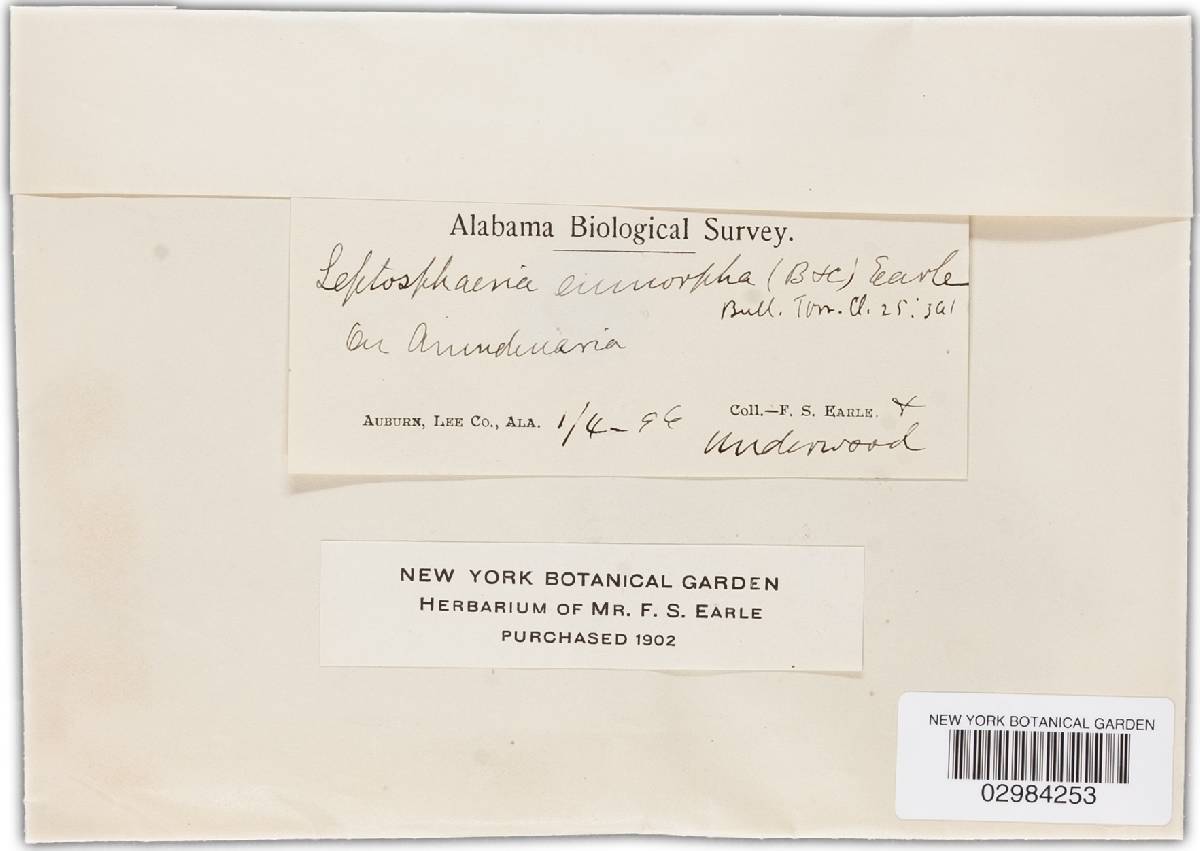 Alabama Biological Survey.
Leptosphaeria eumorpha (B & C) Earle
Bull. Torr. Cl. 25: 361
On Arundinaria
Auburn, Lee Co., Ala. 1/4-96 Coll.—F. S. Earle. &
Underwood
NEW YORK BOTANICAL GARDEN
HERBARIUM OF MR. F. S. EARLE
PURCHASED 1902
NEW YORK BOTANICAL GARDEN
02984253